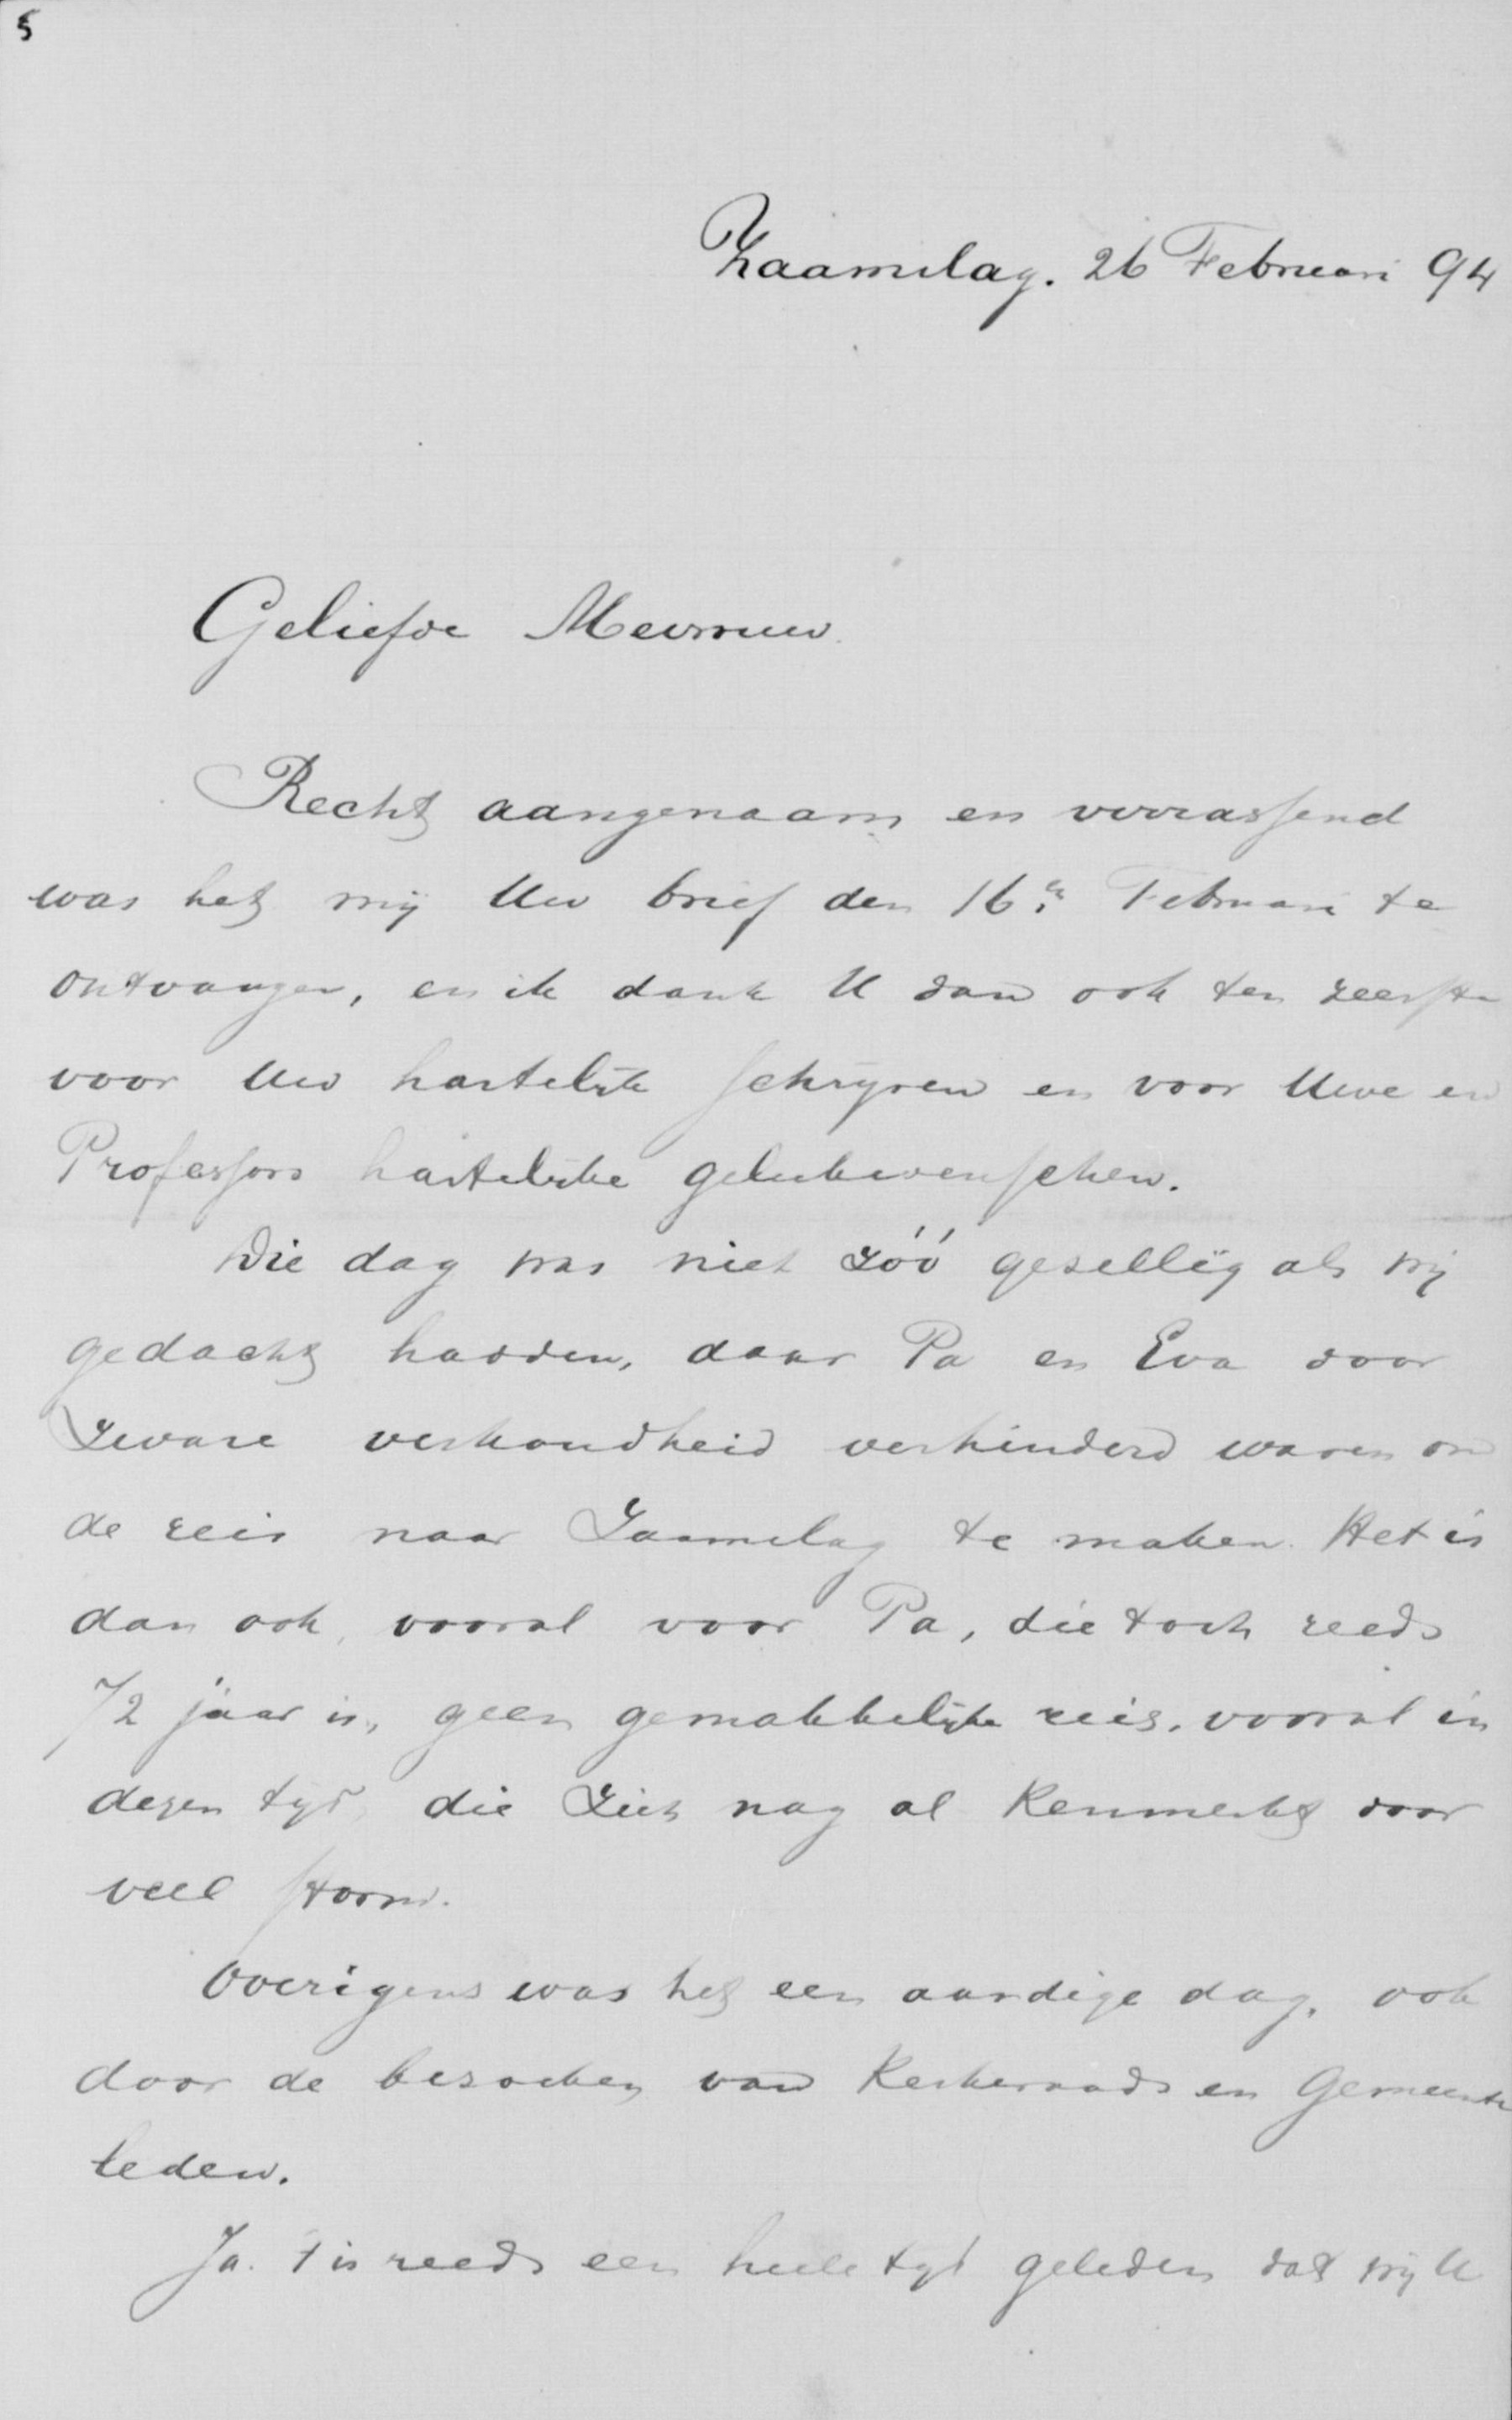 5
Zaamslag. 26 Februari 94
Geliefde Mevrouw.
Recht aangenaam en verrassend
was het mij Uw brief den 16en Februari te
ontvangen, en ik dank U dan ook ten zeerste
voor Uw hartelijk schrijven en voor Uwe en
Professors hartelijke gelukwenschen.
Die dag was niet zóó gezellig als wij
gedacht hadden, daar Pa en Eva door
zware verkoudheid verhinderd waren om
de reis naar Zaamslag te maken. Het is
dan ook, vooral voor Pa, die toch reeds
72 jaar is, geen gemakkelijke reis, vooral in
dezen tijd, die zich nog al kenmerkt door
veel storm.
Overigens was het een aardige dag, ook
door de bezoeken van Kerkeraads en Gemeente
leden.
Ja. 't is reeds een heele tijd geleden dat wij U